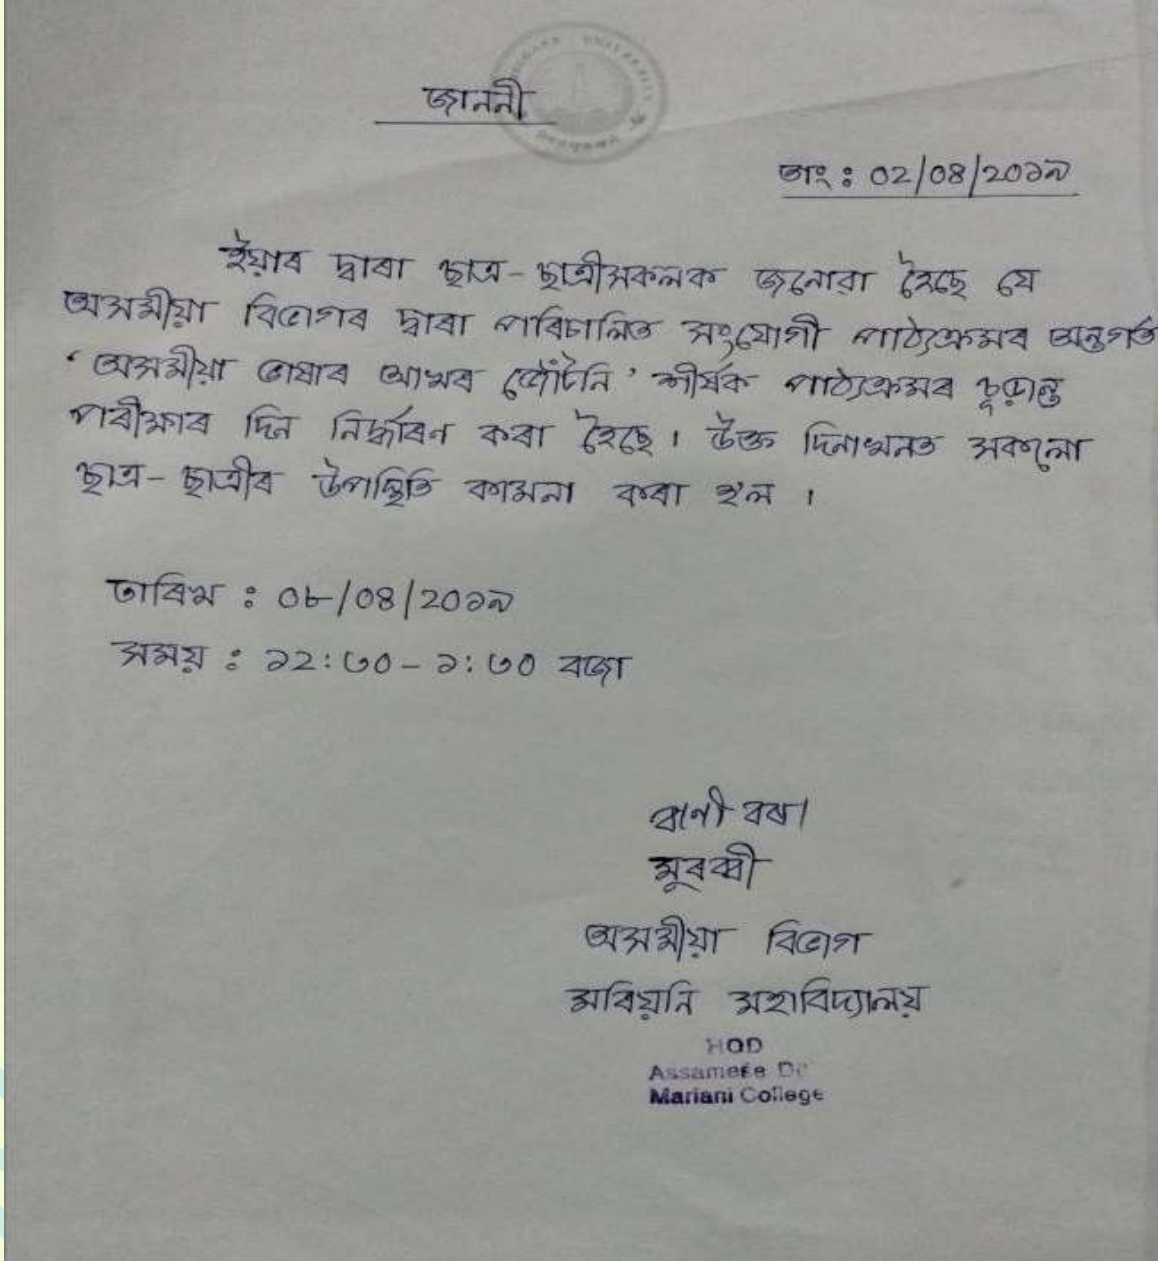 জাননী
তাং : ০২/০৪/২০১৯
ইয়াৰ দ্বাৰা ছাত্ৰ-ছাত্ৰীসকলক জনোৱা হৈছে যে
অসমীয়া বিভাগৰ দ্বাৰা পৰিচালিত সংযোগী পাঠ্যক্ৰমৰ অন্তৰ্গত
'অসমীয়া ভাষাৰ আখৰ জোঁটনি' শীৰ্ষক পাঠ্যক্ৰমৰ চূড়ান্ত
পৰীক্ষাৰ দিন নিৰ্দ্ধাৰণ কৰা হৈছে। উক্ত দিনাখনত সকলো
ছাত্ৰ-ছাত্ৰীৰ উপস্থিতি কামনা কৰা হ'ল ।
তাৰিখ : ০৮/০৪/২০১৯
সময় : ১২:৩০ – ১:৩০ বজা
ৰাণী বৰা
মুৰব্বী
অসমীয়া বিভাগ
মৰিয়নি মহাবিদ্যালয়
HOD
Assamese
Mariani College